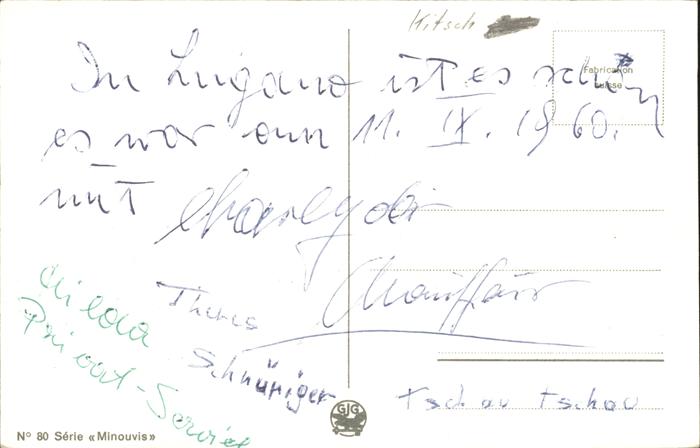 Kitsch
Fabrication
suisse
In Lugano ist es schön
es war am 11. IX. 1960.
mit Charly der
Chauffeur
Theres
Schnüriger
Hilda
Privat-Servier
tschau tschau
GJG
N° 80 Série «Minouvis»